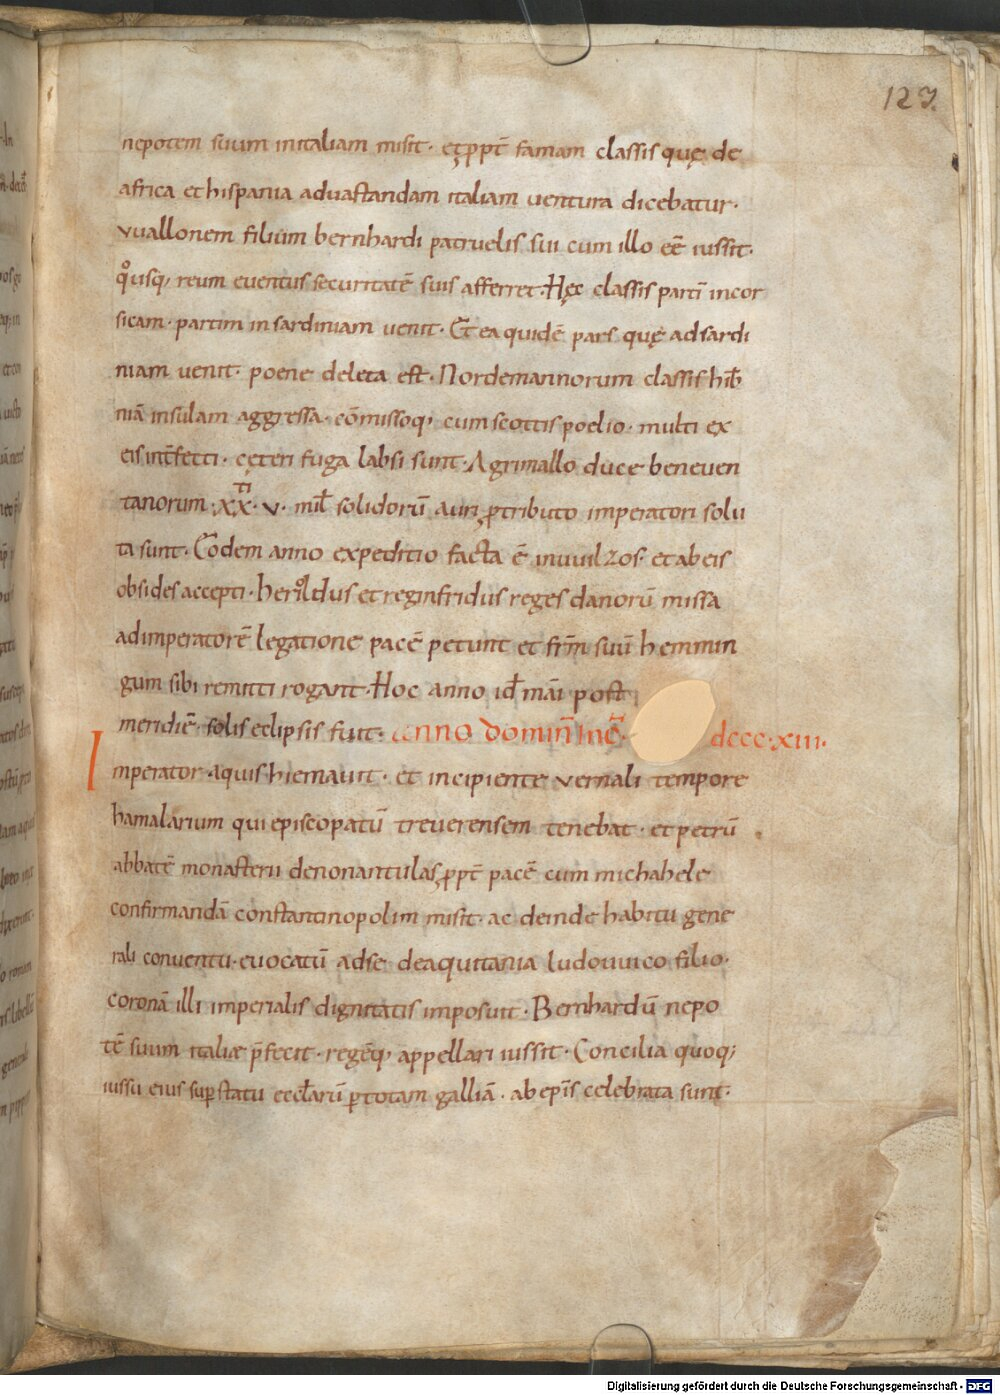 127.
nepotem suum initaliam misit· et ꝓpt̄ famam classis quę de
africa et hispania aduastandam italiam uentura dicebatur·
vuallonem filium bernhardi patruelis sui cum illo eē iussit·
qͦusq; reum euentus securitatē suis afferret· Hęc classis parti incor
sicam· partim in sardiniam uenit· Et ea quidē pars quę adsardi
niam uenit· poene deleta est· Nordemannorum classis hib̄
niā insulam aggressa· cōmissoq; cum scottis poelio· multi ex
eis int̄fecti· cęteri fuga labsi sunt· A grimallo duce beneuen
tanorum ·xx·ti v· mil̄ solidorū auri ꝓtributo imperatori solu
ta sunt· Eodem anno expeditio facta ē inuuilzos· et ab eis
obsides accepti· herioldus et reginfridus reges danorū missa
adimperatorē legatione pacē petunt et frm̄ suū hemmin
gum sibi remitti rogant· Hoc anno id̄ māi post
meridiē· solis eclipsis fuit· anno dominīnc̄ę· dccc·xiii·
Imperator· aquis hiemauit· et incipiente vernali tempore
hamalarium qui episcopatū treuerensem tenebat· et petrū
abbatē monasterii denonantulas, ꝓpt̄ pacē cum michahele
confirmandā constantinopolim misit· ac deinde habitu gene
rali conuentu· euocatū adse deaquitania ludouuico filio·
coronā illi imperialis dignitatis imposuit· Bernhardū nepo
tē suum italiæ p̄fecit· regēq; appellari iussit· Concilia quoq;
iussu eius sup̄ statu eccl̄arū ꝑtotam galliā· ab epīs celebrata sunt·
Digitalisierung gefördert durch die Deutsche Forschungsgemeinschaft - DFG